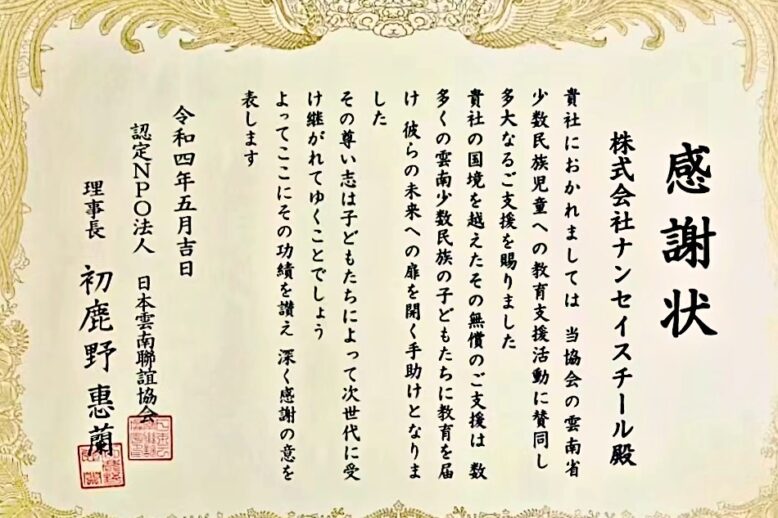 感謝状
株式会社ナンセイスチール殿
貴社におかれましては 当協会の雲南省
少数民族児童への教育支援活動に賛同し
多大なるご支援を賜りました
貴社の国境を越えたその無償のご支援は 数
多くの雲南少数民族の子どもたちに教育を届
け 彼らの未来への扉を開く手助けとなりま
した
その尊い志は子どもたちによって次世代に受
け継がれてゆくことでしょう
よってここにその功績を讃え 深く感謝の意を
表します
令和四年五月吉日
認定NPO法人 日本雲南聯誼協会
理事長 初鹿野惠蘭